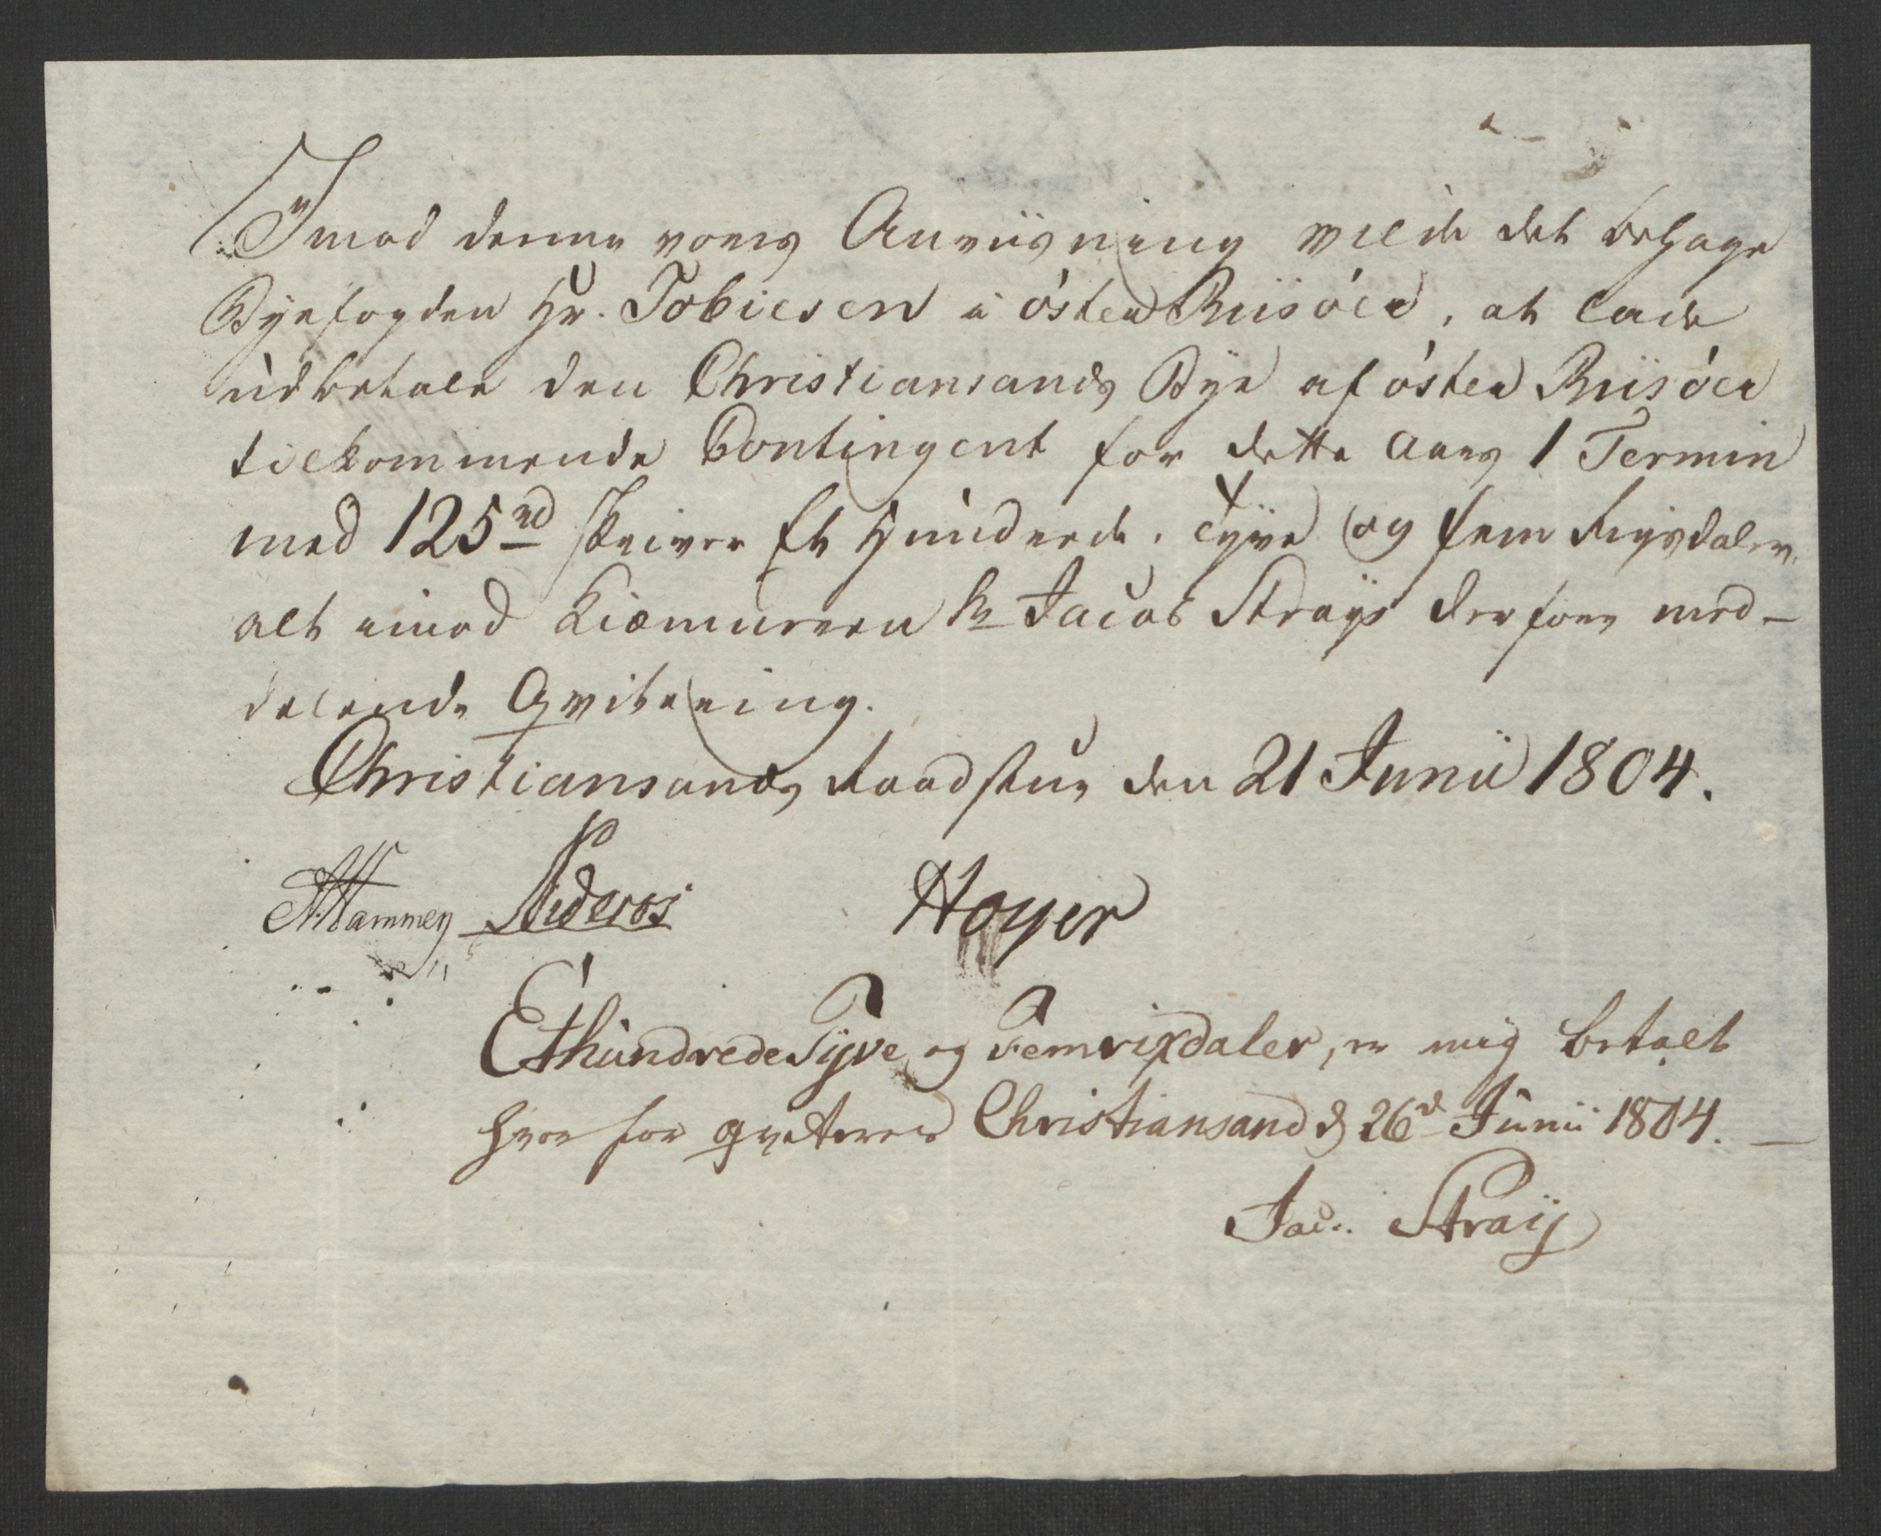 Imod denne vores Anviisning vilde det behage
Byefogden Hr. Tobiesen i Öster Riisöer, at lade
udbetale den Christiansands Bye af öster Riisöer
tilkommende Contingent for dette Aars 1 Termin
med 125 rd skriver Et Hundrede, Tyve og fem Rigsdaler,
alt imod Kiæmureren Hr Jacob Strays derfore med-
delende Qvitering.
Christiansands Raadstue den 21 Junii 1804.
Hammer Nideros Hoyer
Ethundrede Tyve og Femrixdaler, er mig betalt
hvorfor qvitteres Christiansand d 26d Junii 1804. —
Jac. Straÿ